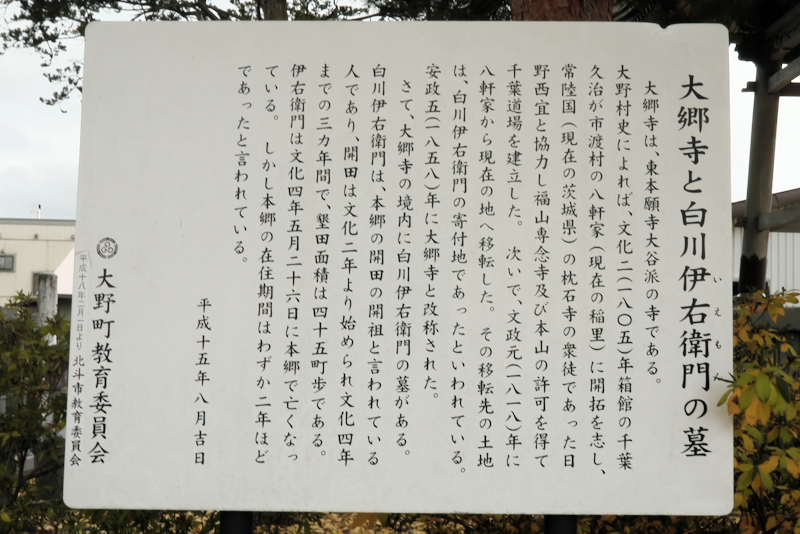 大郷寺と白川伊右衛門の墓
いえもん
大郷寺は、東本願寺大谷派の寺である。
大野村史によれば、文化二(一八〇五)年箱館の千葉
久治が市渡村の八軒家(現在の稲里)に開拓を志し、
常陸国(現在の茨城県)の枕石寺の衆徒であった日
野西宜と協力し福山専念寺及び本山の許可を得て
千葉道場を建立した。次いで、文政元(一八一八)年に
八軒家から現在の地へ移転した。その移転先の土地
は、白川伊右衛門の寄付地であったといわれている。
安政五(一八五八)年に大郷寺と改称された。
さて、大郷寺の境内に白川伊右衛門の墓がある。
白川伊右衛門は、本郷の開田の開祖と言われている
人であり、開田は文化二年より始められ文化四年
までの三カ年間で、墾田面積は四十五町歩である。
伊右衛門は文化四年五月二十六日に本郷で亡くなっ
ている。しかし本郷の在住期間はわずか二年ほど
であったと言われている。
平成十五年八月吉日
大野町教育委員会
平成十八年二月一日より 北斗市教育委員会